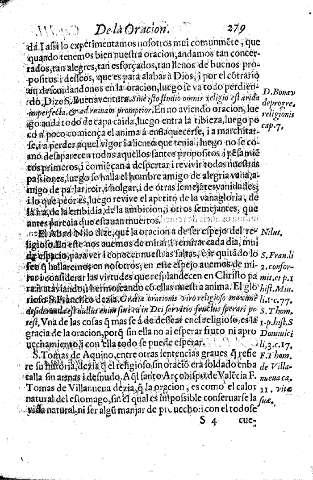 De la Oracion. 279
da. I assi lo experimentamos nosotros mui comunmẽte, que
quando tenemos bien nuestra oracion, andamos tan concer-
tados, tan alegres, tan esforçados, tan llenos de buenos pro-
positos i desseos, que es para alabar a Dios; i por el cõtrario
en descuidandonos en la oracion, luego se va todo perdien-
do. Dize S. Buenaventura. Sine isto studio omnis religio est arida
imperfecta, & ad ruinam promptior. En no aviendo oracion, lue
go anda todo de capa caida, luego entra la tibieza, luego po
co a poco comiença el anima a enflaquecerse, i a marchitar-
se, i a perder aquel vigor i aliento que tenia; luego no se co-
mo desaparecen todos aquellos santos propositos i pẽsamiẽ
tos primeros, i comiençan a despertar i revivir todas nuestras
passiones, luego se halla el hombre amigo de alegria vana, a-
migo de parlar, reir, i holgar, i de otras semejantes vanidades;
i lo que peor es, luego revive el apetito de la vanagloria, de
la ira, de la embidia, de la ambicion, i otros semejantes, que
antes parecia que estavan muertos.
El Abad Nilo dize, que la oracion a de ser espejo del re-
ligioso. En este nos avemos de mirar i remirar cada dia, mui
de espacio, para ver i conocer nuestras faltas, è ir quitãdo lo
feo q̃ hallaremos en nosotros; en este espejo avemos de mi-
rar i considerar las virtudes que resplandecen en Christo pa
ra ir adornando i hermoseando con ellas nuestra anima. El glo
rioso S. Francisco dezia.
Una de las cosas q̃ mas se à de dessear en el religioso, es la
gracia de la oracion, porq̃ sin ella no ai esperar fruto ni apro
vechamiento; i con ella todo se puede esperar.
S. Tomas de Aquino, entre otras sentencias graves q̃ refie
re su historia, dezia q̃ el religioso sin oracion era soldado en ba
talla sin armas i desnudo. Aq̃l santo Arçobispo de Valẽcia F.
Tomas de Villanueva dezia, q̃ la oracion, es como el calor
natural del estomago, sin el qual es impossible conservarse la
vida natural, ni ser algũ manjar de provecho: i con el todo se
S 4 cue-
D. Bonav
de progre.
religionis
cap. 7.
Nilus,
S. Fran. li
1. confor-
mit. et p. 2
hist. Min.
li. 1. c. 77.
S. Thom.
1. p. hist. S
Dominici
li. 3. c. 17.
F. Thom.
de Villa-
nueva ca.